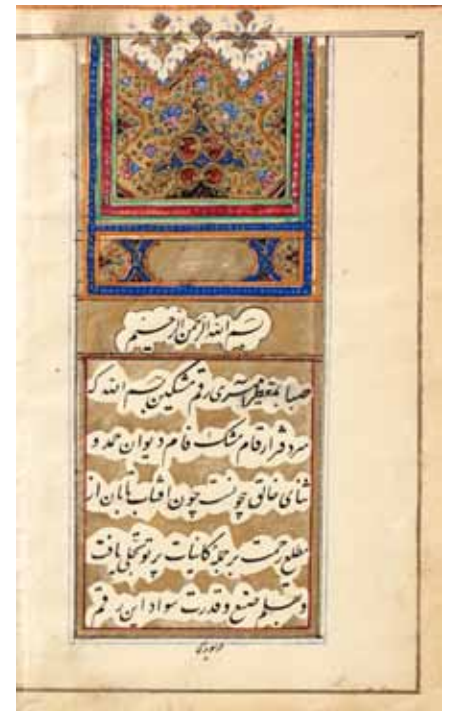 بسم الله الرحمن الرحیم
صبا بمعطر رقم مشکین بسم الله که
سرد فر ارقام مشک فام دیوان حمد و
ثنای خالق بیچونست چون افتاب تابان از
مطلع رحمت بر جمله کاینات پرتو تجلی یافت
و بقلم صنع و قدرت سواد این رقم